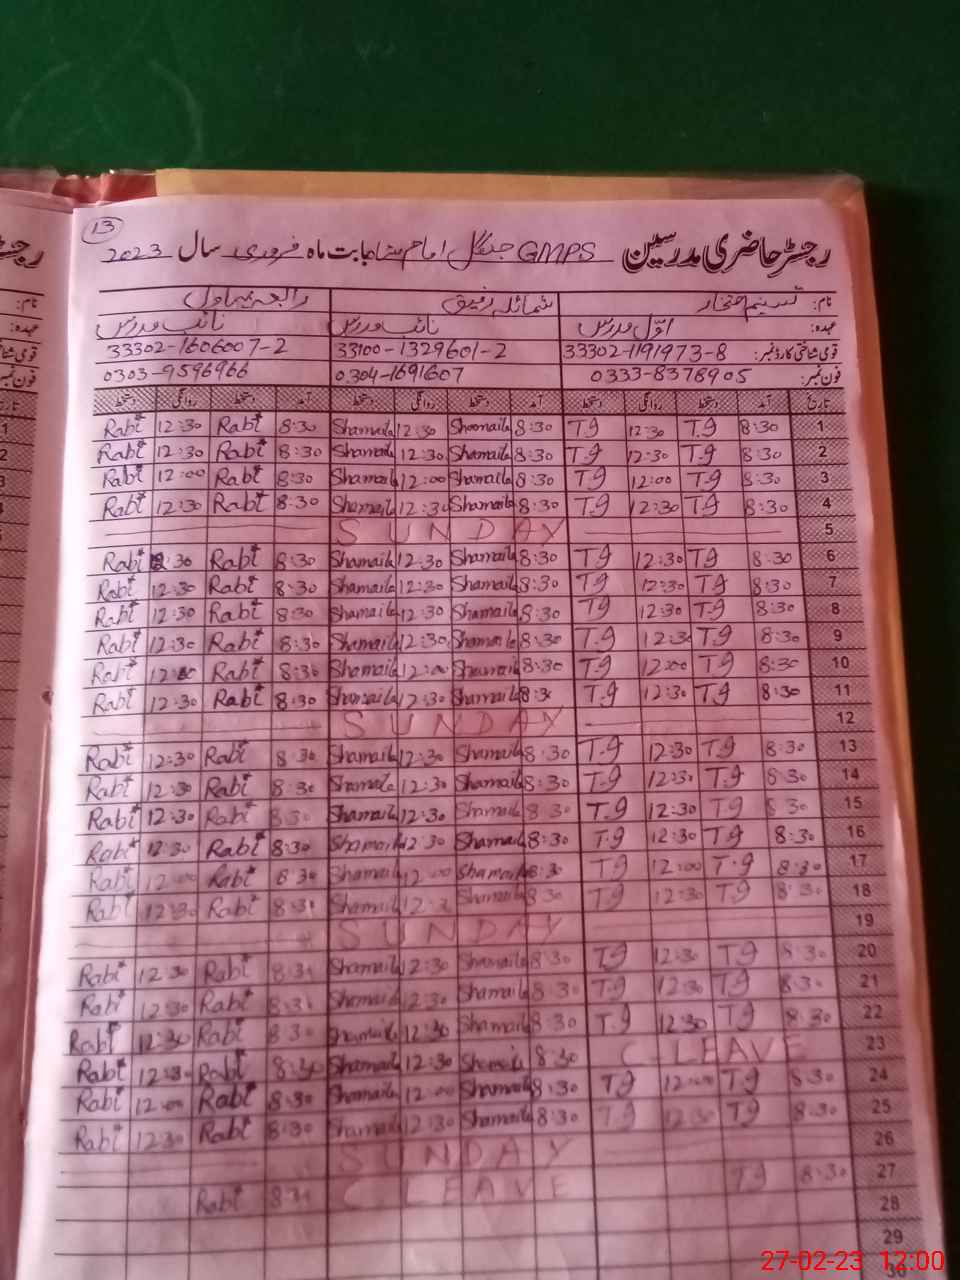 13
رجسٹر حاضری مدرسین GMPS جنگل امام بابت ماہ فروری سال 2023
نام: تسنیم افتخار شمائلہ رفیق رابعہ بہاول
عہدہ: اوّل مدرس نائب مدرس نائب مدرس
قومی شناختی کارڈ نمبر: 33302-1191973-8 33100-1329601-2 33302-1606007-2
فون نمبر: 0333-8378905 0304-1691607 0303-9596966
تاریخ آمد دستخط روانگی دستخط آمد دستخط روانگی دستخط آمد دستخط روانگی دستخط
1 8:30 T.g 12:30 T.g 8:30 Shamaila 12:30 Shamaila 8:30 Rabi 12:30 Rabi
2 8:30 T.g 12:30 T.g 8:30 Shamaila 12:30 Shamaila 8:30 Rabi 12:30 Rabi
3 8:30 T.g 12:00 T.g 8:30 Shamaila 12:00 Shamaila 8:30 Rabi 12:00 Rabi
4 8:30 T.g 12:30 T.g 8:30 Shamaila 12:30 Shamaila 8:30 Rabi 12:30 Rabi
5 SUNDAY
6 8:30 T.g 12:30 T.g 8:30 Shamaila 12:30 Shamaila 8:30 Rabi 12:30 Rabi
7 8:30 T.g 12:30 T.g 8:30 Shamaila 12:30 Shamaila 8:30 Rabi 12:30 Rabi
8 8:30 T.g 12:30 T.g 8:30 Shamaila 12:30 Shamaila 8:30 Rabi 12:30 Rabi
9 8:30 T.g 12:30 T.g 8:30 Shamaila 12:30 Shamaila 8:30 Rabi 12:30 Rabi
10 8:30 T.g 12:00 T.g 8:30 Shamaila 12:00 Shamaila 8:30 Rabi 12:00 Rabi
11 8:30 T.g 12:30 T.g 8:30 Shamaila 12:30 Shamaila 8:30 Rabi 12:30 Rabi
12 SUNDAY
13 8:30 T.g 12:30 T.g 8:30 Shamaila 12:30 Shamaila 8:30 Rabi 12:30 Rabi
14 8:30 T.g 12:30 T.g 8:30 Shamaila 12:30 Shamaila 8:30 Rabi 12:30 Rabi
15 8:30 T.g 12:30 T.g 8:30 Shamaila 12:30 Shamaila 8:30 Rabi 12:30 Rabi
16 8:30 T.g 12:30 T.g 8:30 Shamaila 12:30 Shamaila 8:30 Rabi 12:30 Rabi
17 8:30 T.g 12:00 T.g 8:30 Shamaila 12:00 Shamaila 8:30 Rabi 12:00 Rabi
18 8:30 T.g 12:30 T.g 8:30 Shamaila 12:3 Shamaila 8:30 Rabi 12:30 Rabi
19 SUNDAY
20 8:30 T.g 12:30 T.g 8:30 Shamaila 12:30 Shamaila 8:30 Rabi 12:30 Rabi
21 8:30 T.g 12:30 T.g 8:30 Shamaila 12:30 Shamaila 8:30 Rabi 12:30 Rabi
22 8:30 T.g 12:30 T.g 8:30 Shamaila 12:30 Shamaila 8:30 Rabi 12:30 Rabi
23 C-LEAVE 8:30 Shamaila 12:30 Shamaila 8:30 Rabi 12:30 Rabi
24 8:30 T.g 12:00 T.g 8:30 Shamaila 12:00 Shamaila 8:30 Rabi 12:00 Rabi
25 8:30 T.g 12:30 T.g 8:30 Shamaila 12:30 Shamaila 8:30 Rabi 12:30 Rabi
26 SUNDAY
27 8:30 T.g C LEAVE 8:30 Rabi
28
29
30
27-02-23 12:00